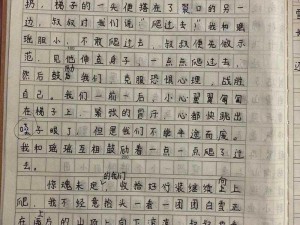 扔，梯子的一先便搭在了裂口的另一
边，叔叔对我们说"爬过去"，我和瑞
瑶胆小，不敢爬过去，叔叔便先做示
范，见他俯直身子，一点一点爬过去，
然后鼓励我们，克服恐惧心理，战胜
自己。我们一前一后，小心翼翼匍匐
在梯子上，紧张的冒汗，心都快跳出
嗓子眼了，但是我们不能半途而废。
我和瑶瑶互相鼓励着一点一点爬了过
去。
惊魂未定的我们，收拾好行装继续向上
爬，我不经意抬头一团团白雪正
在 上方的山上向下